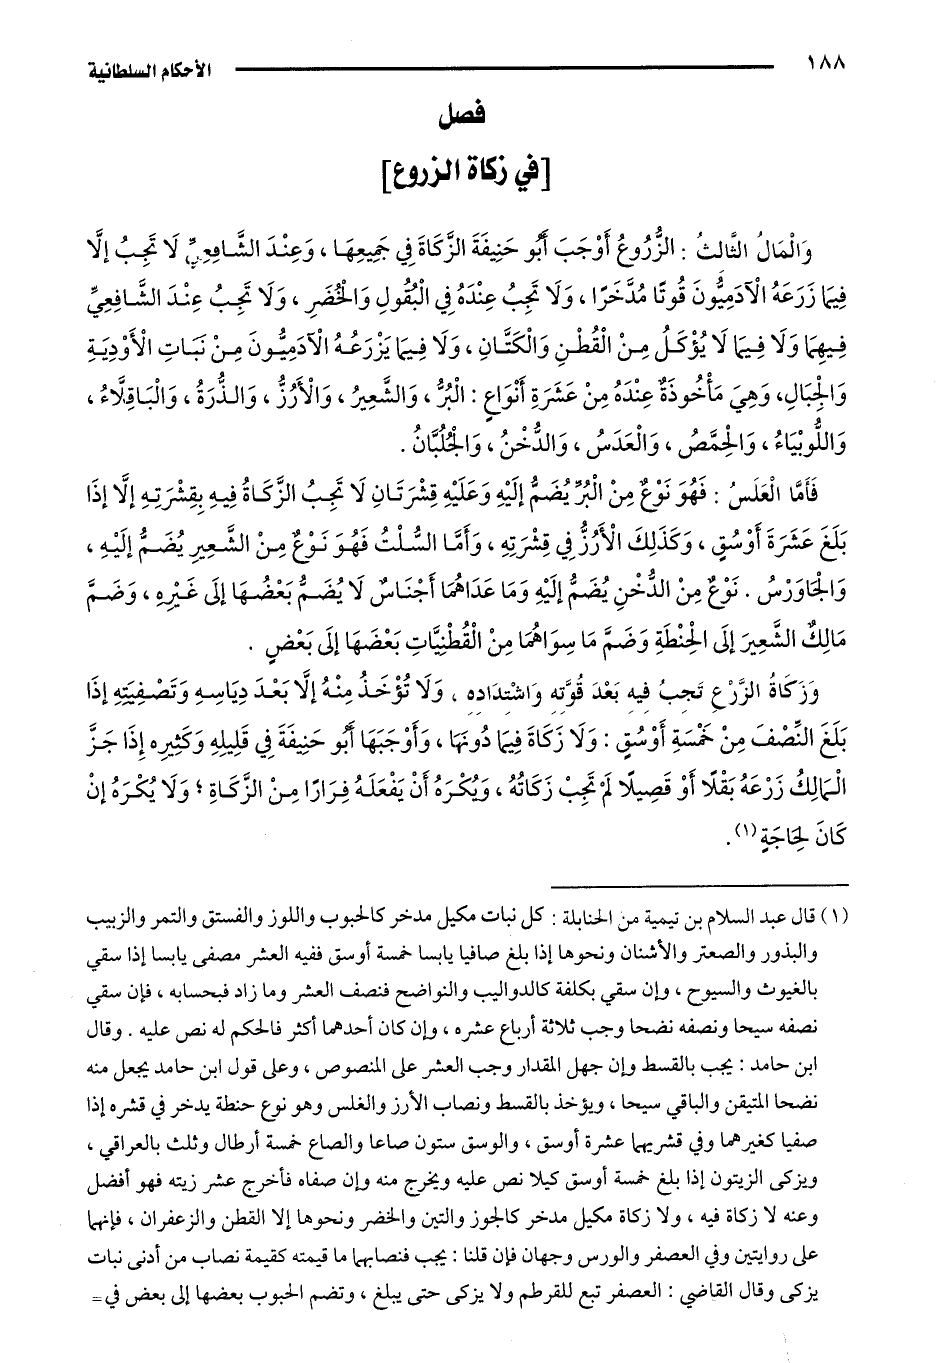 ١٨٨ الأحكام السلطانية
فصل
[في زكاة الزروع]
وَالْمَالُ الثَّالِثُ : الزُّرُوعُ أَوْجَبَ أَبُو حَنِيفَةَ الزَّكَاةَ فِي جَمِيعِهَا ، وَعِنْدَ الشَّافِعِيِّ لَا تَجِبُ إلَّا
فِيمَا زَرَعَهُ الْآدَمِيُّونَ قُوتًا مُدَّخَرًا ، وَلَا تَجِبُ عِنْدَهُ فِي الْبُقُولِ وَالْخُضَرِ ، وَلَا تَجِبُ عِنْدَ الشَّافِعِيِّ
فِيهِمَا وَلَا فِيمَا لَا يُؤْكَلُ مِنْ الْقُطْنِ وَالْكَتَّانِ ، وَلَا فِيمَا يَزْرَعُهُ الْآدَمِيُّونَ مِنْ نَبَاتِ الْأَوْدِيَةِ
وَالْجِبَالِ، وَهِيَ مَأْخُوذَةٌ عِنْدَهُ مِنْ عَشَرَةِ أَنْوَاعٍ : الْبُرُّ ، وَالشَّعِيرُ ، وَالْأَرُزُّ ، وَالذُّرَةُ ، وَالْبَاقِلَّاءُ ،
وَاللُّوبْيَاءُ ، وَالْحِمَّصُ ، وَالْعَدَسُ ، وَالدُّخْنُ ، وَالْجُلُبَّانُ .
فَأَمَّا الْعَلَسُ : فَهُوَ نَوْعٌ مِنْ الْبُرِّ يُضَمُّ إلَيْهِ وَعَلَيْهِ قِشْرَتَانِ لَا تَجِبُ الزَّكَاةُ فِيهِ بِقِشْرَتِهِ إلَّا إذَا
بَلَغَ عَشَرَةَ أَوْسُقٍ ، وَكَذَلِكَ الْأَرُزُّ فِي قِشْرَتِهِ ، وَأَمَّا السُّلْتُ فَهُوَ نَوْعٌ مِنْ الشَّعِيرِ يُضَمُّ إلَيْهِ ،
وَالْجَاوَرْسُ . نَوْعٌ مِنْ الدُّخْنِ يُضَمُّ إلَيْهِ وَمَا عَدَاهُمَا أَجْنَاسٌ لَا يُضَمُّ بَعْضُهَا إلَى غَيْرِهِ ، وَضَمَّ
مَالِكٌ الشَّعِيرَ إلَى الْحِنْطَةِ وَضَمَّ مَا سِوَاهُمَا مِنْ الْقُطْنِيَّاتِ بَعْضَهَا إلَى بَعْضٍ .
وَزَكَاةُ الزَّرْعِ تَجِبُ فِيهِ بَعْدَ قُوَّتِهِ وَاشْتِدَادِهِ ، وَلَا تُؤْخَذُ مِنْهُ إلَّا بَعْدَ دِيَاسِهِ وَتَصْفِيَتِهِ إذَا
بَلَغَ النِّصْفَ مِنْ خَمْسَةِ أَوْسُقٍ : وَلَا زَكَاةَ فِيمَا دُونَهَا ، وَأَوْجَبَهَا أَبُو حَنِيفَةَ فِي قَلِيلِهِ وَكَثِيرِهِ إذَا جَزَّ
الْمَالِكُ زَرْعَهُ بَقْلًا أَوْ قَصِيلًا لَمْ تَجِبْ زَكَاتُهُ ، وَيُكْرَهُ أَنْ يَفْعَلَهُ فِرَارًا مِنْ الزَّكَاةِ ؛ وَلَا يُكْرَهُ إنْ
كَانَ لِحَاجَةٍ (١).
(١) قال عبد السلام بن تيمية من الحنابلة : كل نبات مكيل مدخر كالحبوب واللوز والفستق والتمر والزبيب
والبذور والصعتر والأشنان ونحوها إذا بلغ صافيا يابسا خمسة أوسق ففيه العشر مصفى يابسا إذا سقي
بالغيوث والسيوح ، وإن سقي بكلفة كالدواليب والنواضح فنصف العشر وما زاد فبحسابه ، فإن سقي
نصفه سيحا ونصفه نضحا وجب ثلاثة أرباع عشره ، وإن كان أحدهما أكثر فالحكم له نص عليه . وقال
ابن حامد : يجب بالقسط وإن جهل المقدار وجب العشر على المنصوص ، وعلى قول ابن حامد يجعل منه
نضحا المتيقن والباقي سيحا ، ويؤخذ بالقسط ونصاب الأرز والغلس وهو نوع حنطة يدخر في قشره إذا
صفيا كغيرهما وفي قشريهما عشرة أوسق ، والوسق ستون صاعا والصاع خمسة أرطال وثلث بالعراقي ،
ويزكى الزيتون إذا بلغ خمسة أوسق كيلا نص عليه ويخرج منه وإن صفاه فأخرج عشر زيته فهو أفضل
وعنه لا زكاة فيه ، ولا زكاة مكيل مدخر كالجوز والتين والخضر ونحوها إلا القطن والزعفران ، فإنهما
على روايتين وفي العصفر والورس وجهان فإن قلنا : يجب فنصابهما ما قيمته كقيمة نصاب من أدنى نبات
يزكى وقال القاضي : العصفر تبع للقرطم ولا يزكى حتى يبلغ ، وتضم الحبوب بعضها إلى بعض في =